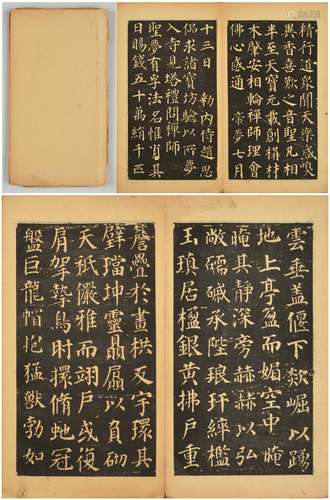 精行道衆聞天樂咸嗅
異香喜歎之音聖凡相
半至天寶元載創構材
木肇安相輪禪師理會
佛心感通 帝夢七月
十三日 勑内侍趙思
偘求諸寶坊驗以所夢
入寺見塔禮問禪師
聖夢有孚法名惟肖其
日賜錢五十萬絹千匹
雲垂盖偃下欻崛以踊
地上亭盈而媚空中晻
晻其静深旁赫赫以弘
敞礝碱承陛琅玕綷檻
玉瑱居楹銀黄拂户重
簷疊於畫栱反宇環其
璧璫坤靈贔屓以負砌
天祇儼雅而翊户或復
肩挐摯鳥肘擐脩虵冠
盤巨龍帽抱猛獸勃如